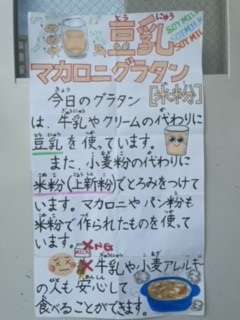 豆乳
マカロニグラタン
【米粉】
今日のグラタン
は、牛乳やクリームの代わりに
豆乳を使っています。
また、小麦粉の代わりに
米粉(上新粉)でとろみをつけて
います。マカロニやパン粉も
米粉で作られたものを使って
います。
牛乳や小麦アレルギー
の人も安心して
食べることができます。